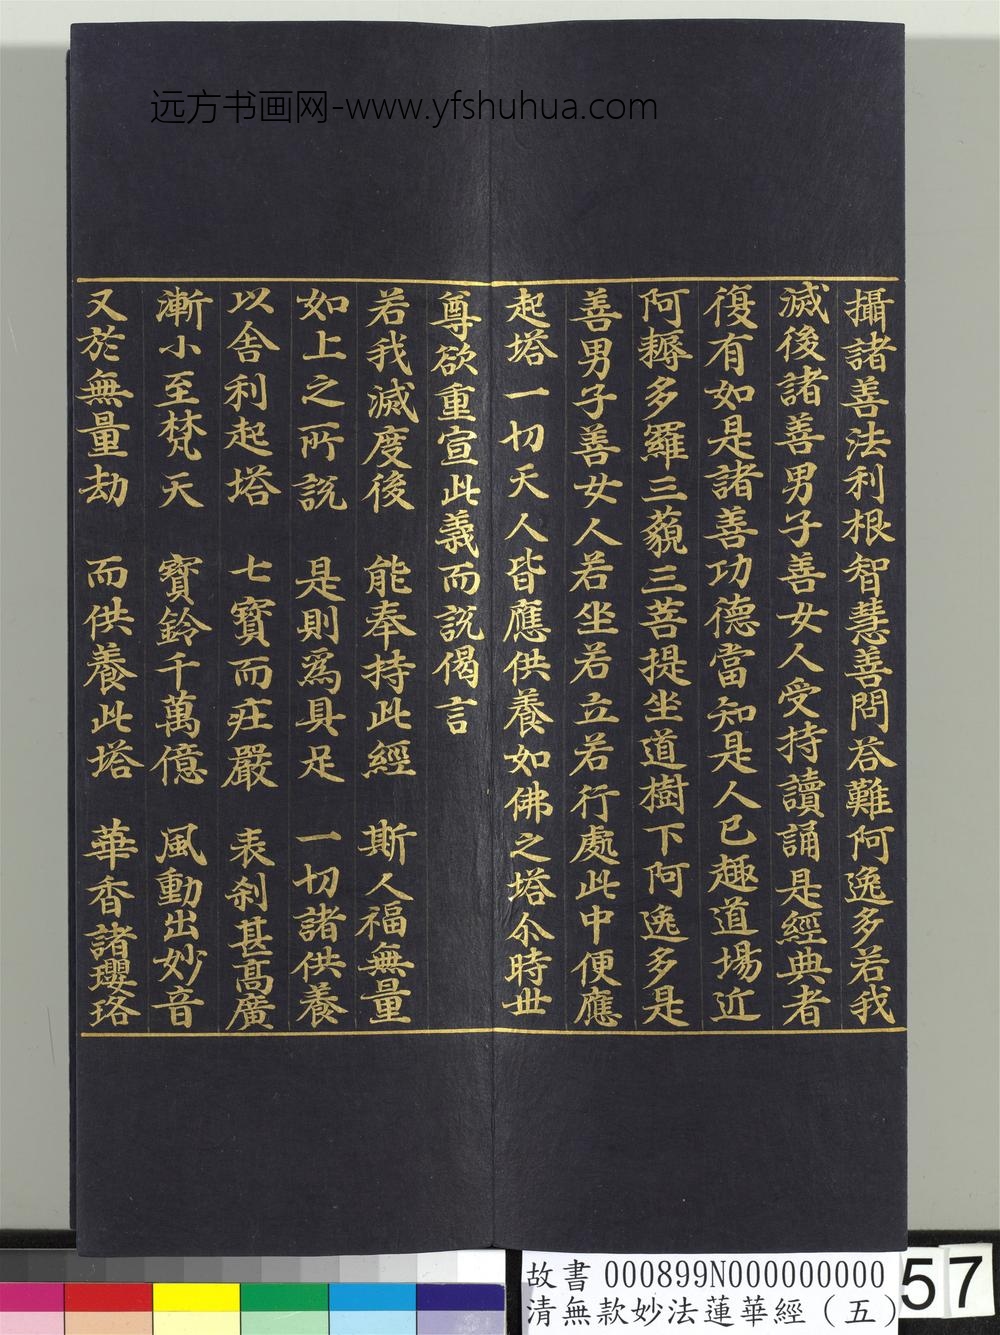 远方书画网-www.yfshuhua.com
攝諸善法利根智慧善問答難阿逸多若我
滅後諸善男子善女人受持讀誦是經典者
復有如是諸善功德當知是人已趣道場近
阿耨多羅三藐三菩提坐道樹下阿逸多是
善男子善女人若坐若立若行處此中便應
起塔一切天人皆應供養如佛之塔尒時世
尊欲重宣此義而說偈言
若我滅度後 能奉持此經 斯人福無量
如上之所說 是則爲具足 一切諸供養
以舍利起塔 七寶而莊嚴 表剎甚高廣
漸小至梵天 寶鈴千萬億 風動出妙音
又於無量劫 而供養此塔 華香諸瓔珞
故書 000899N000000000 57
清無款妙法蓮華經（五）